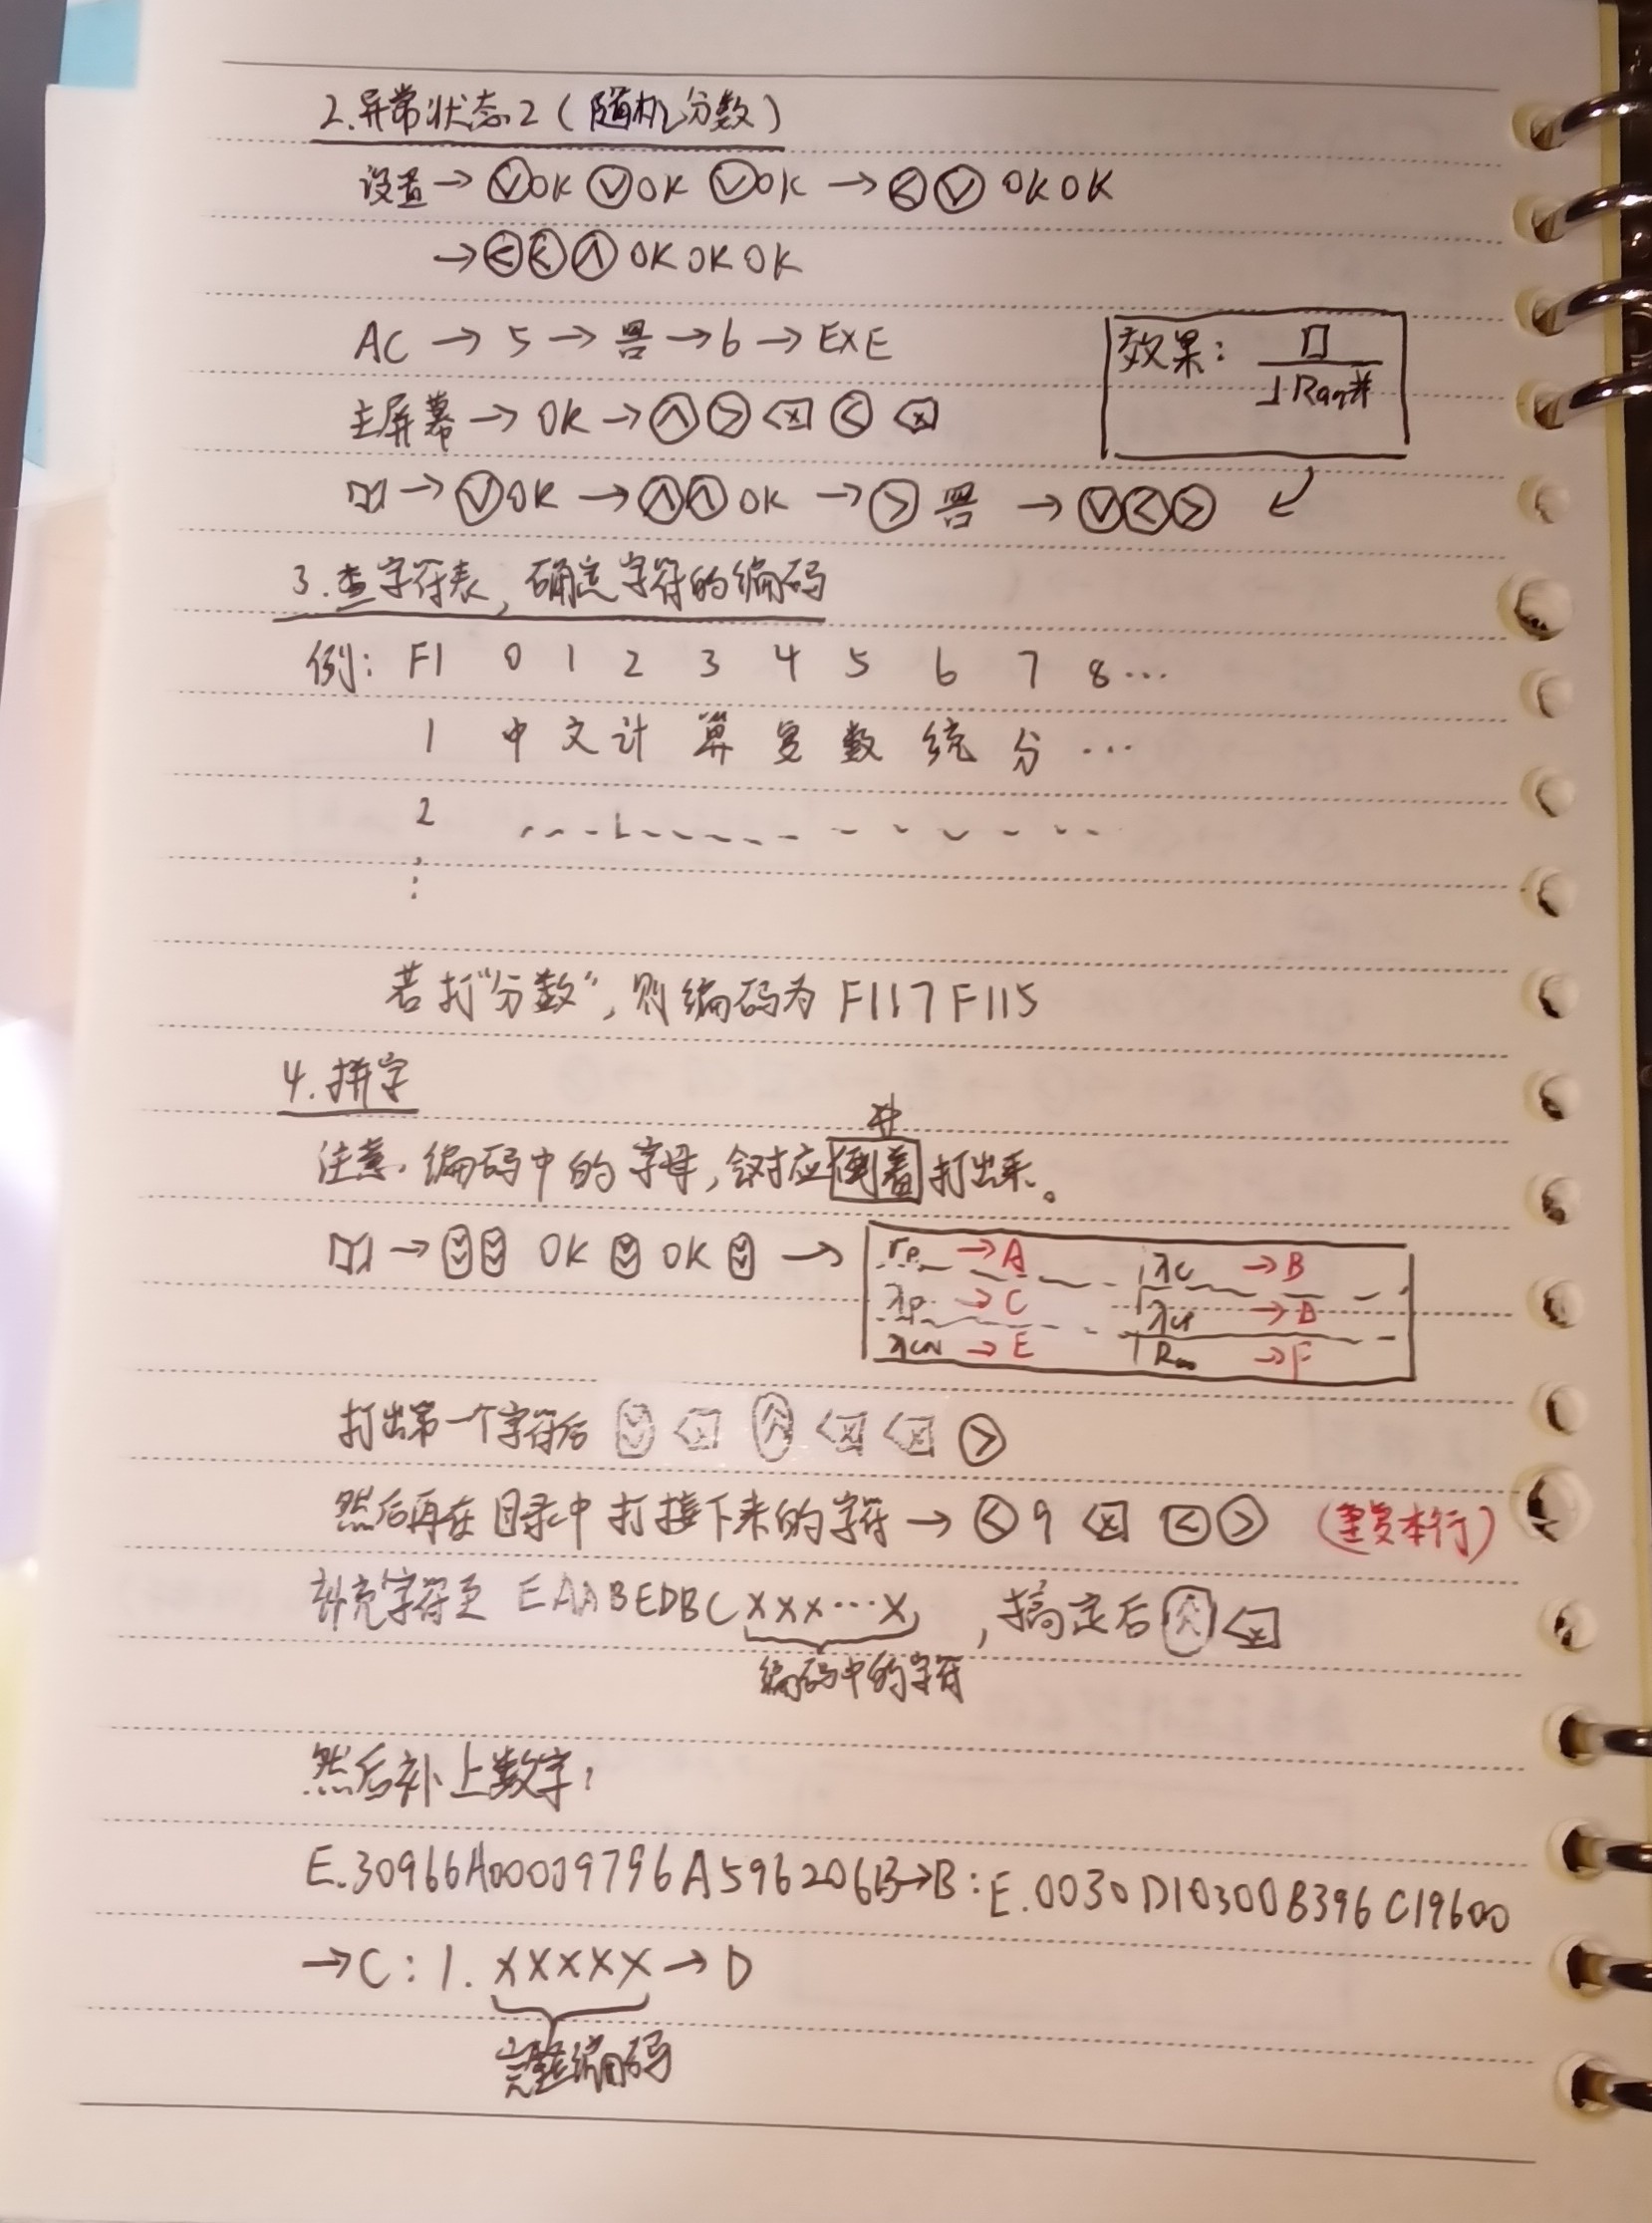 2.异常状态2(随机分数)
设置→ⓥOKⓥOKⓥOK→<ⓥOKOK
→<<∧OKOKOK
AC→5→믐→6→EXE
效果: □/⅃Ran#
主屏幕→OK→∧>⌫<⌫
→∨OK→∧∧OK→>믐→∨<>
3.查字符表,确定字符的编码
例: F1 0 1 2 3 4 5 6 7 8…
1 中 文 计 算 复 数 统 分 …
2
⋮
若打“分数”,则编码为F117F115
4.拼字
注意.编码中的字母,会对应倒着打出来。
→ OK OK →
rp→A λC→B
λp→C λcp→D
λCN→E R∞→F
打出第一个字符后 ⌫ ⌫⌫>
然后再在目录中打接下来的字符→<9⌫<>(重复本行)
补充字符至EAABEDBCxxx…x,搞定后 ⌫
编码中的字符
然后补上数字:
E.30966A00009796A596206B→B:E.0030D10300B396C19600
→C:1.xxxxx→D
完整编码